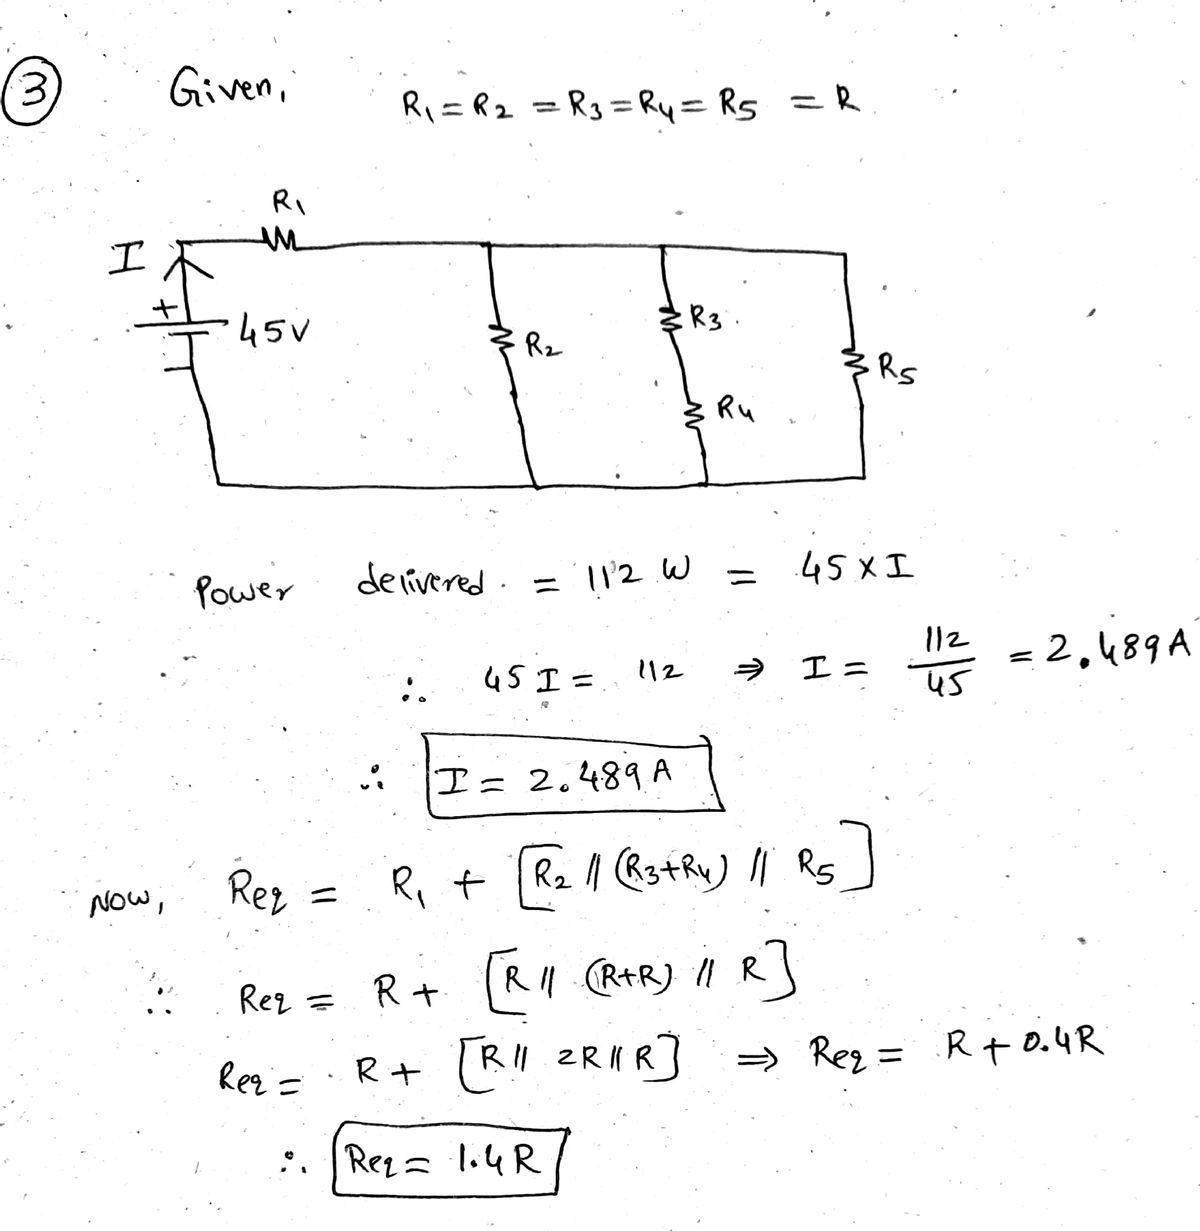 3 Given,
R1 = R2 = R3 = R4 = R5 = R
R1
I
+
45V
R2
R3
R4
R5
Power delivered = 112 W = 45 × I
∴ 45 I = 112 ⇒ I = 112/45 = 2.489 A
∴ I = 2.489 A
Now, Req = R1 + [R2 || (R3+R4) || R5]
∴ Req = R + [R || (R+R) || R]
Req = R + [R || 2R || R] ⇒ Req = R + 0.4R
∴ Req = 1.4 R